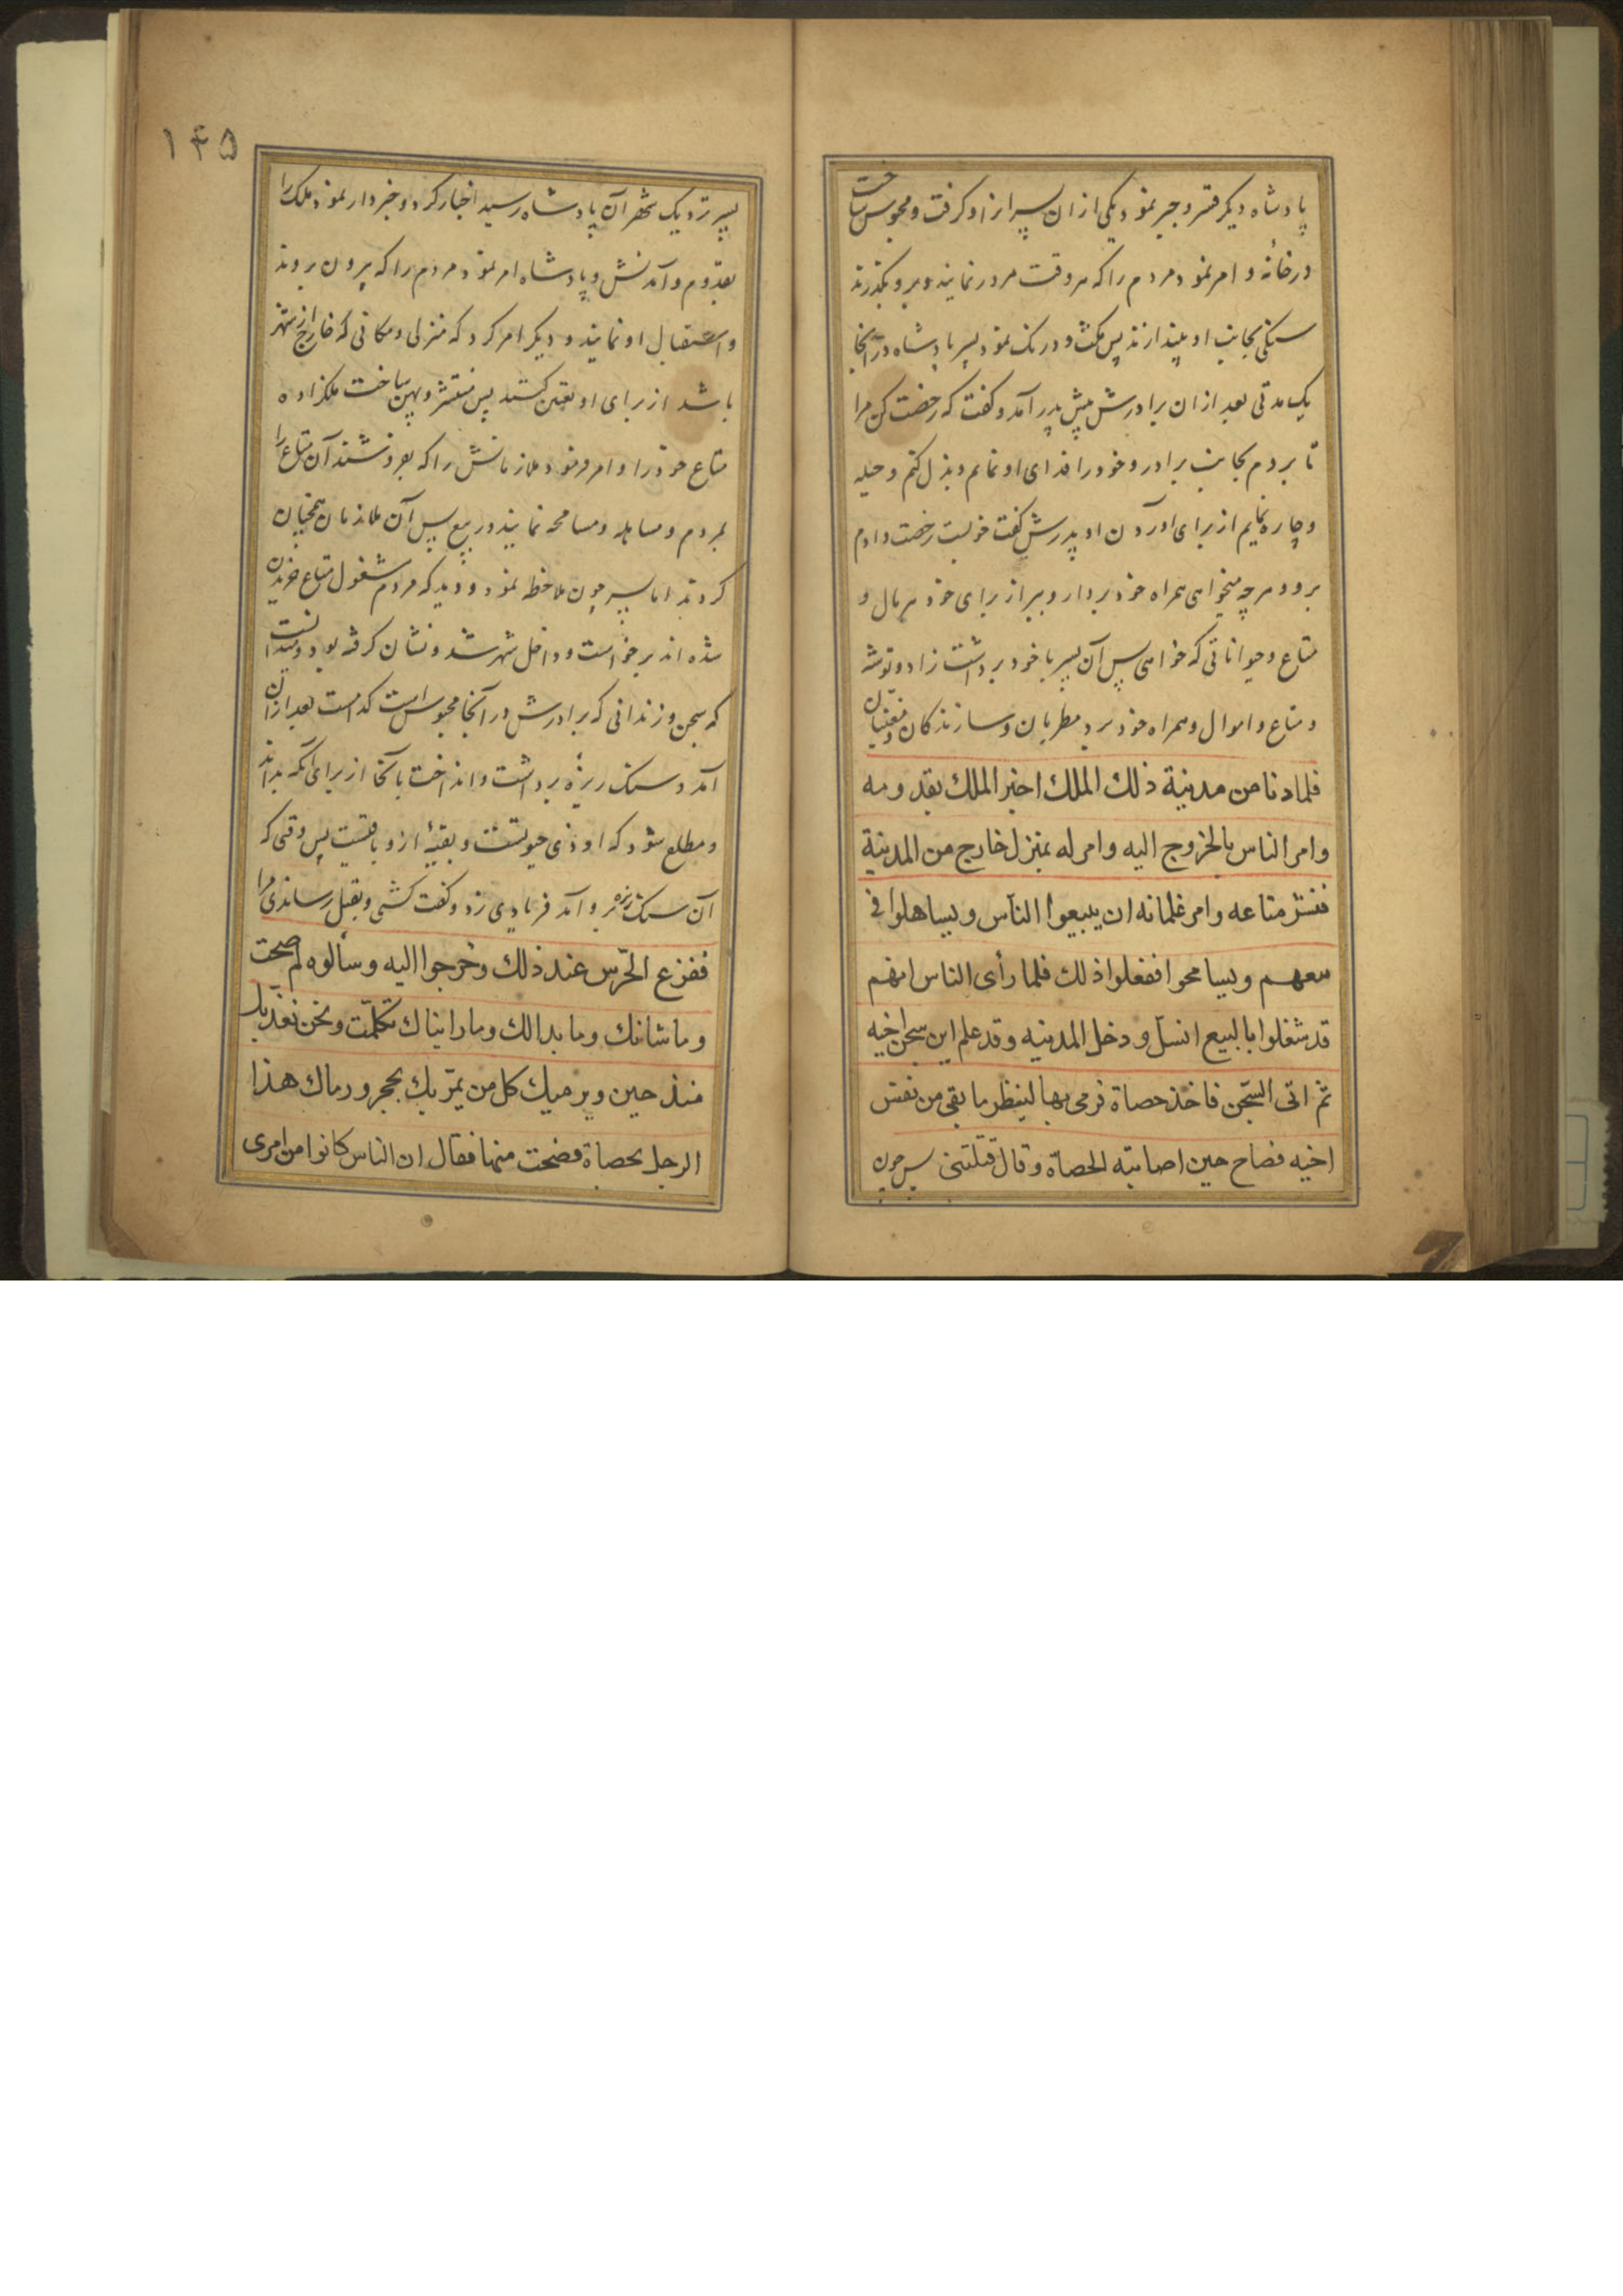 پادشاه دیکر قسر و جبر نمود یکی از ان پسر از او کرفت و محبوس ساخت
در خانهٔ و امر نمود مردم را که هر وقت مرور نمایند و برو بکذرند
سنکی بجانب او بیندازند پس مکث و درنک نمود پسر پادشاه در آنجا
یک مدتی بعد از ان برادرش پیش پدر آمد و کفت که رخصت کن مرا
تا بروم بجانب برادر و خود را فدای او نمایم و بذل کنم و حیله
و چاره نمایم از برای آوردن او پدرش کفت خوبست رخصت دادم
برو و هر چه میخواهی همراه خود بردار و ببر از برای خود هر مال و
متاع و حیواناتی که خواهی پس آن پسر با خود برداشت زاد و توشه
و متاع و اموال و همراه خود برد مطربان و سازندکان و مغنیان
فلما دنا من مدینة ذلك الملك اخبر الملك بقدومه
وامر الناس بالخروج الیه وامر له بمنزل خارج من المدینة
فنشر متاعه وامر غلمانه ان یبیعوا الناس ویساهلوا فی
بیعهم ویسامحوا ففعلوا ذلك فلما رأی الناس انهم
قد شغلوا بالبیع انسل و دخل المدینه وقد علم این سجن اخیه
ثم اتی السجن فاخذ حصاة فرمی بها لینظر ما بقی من نفس
اخیه فصاح حین اصابته الحصاة وقال قتلتنی پس چون
۱۴۵
پسر نزدیک شهر آن پادشاه رسید اخبار کرد و خبردار نمود ملک را
بقدوم و آمدنش و پادشاه امر نمود مردم را که بیرون بروند
و استقبال او نمایند و دیکر امر کرد که منزلی و مکانی که خارج از شهر
باشد از برای او تعیین کنند پس منتشر و پهن ساخت ملکزاده
متاع خود را و امر نمود ملازمانش را که بفروشند آن متاع را
بمردم و مساهله و مسامحه نمایند در بیع پس آن ملازمان همچنان
کردند اما پسر چون ملاحظه نمود و دید که مردم مشغول متاع خریدن
شده اند برخواست و داخل شهر شد و نشان کرفته بود و میدانست
که سجن و زندانی که برادرش در آنجا محبوس است کدامست بعد از ان
آمد و سنک ریزهٔ برداشت و انداخت بآنجا از برای آنکه بداند
و مطلع شود که او ذی حیوتست و بقیهٔ از و باقیست پس وقتی که
آن سنک ریزه برو آمد فریادی زد و کفت کشتی و بقتل رساندی مرا
ففزع الحرس عند ذلك وخرجوا الیه وسألوه لم صحت
وما شانك وما بدالك وما رایناك تکلمت ونحن نعذبك
منذ حین ویرمیك کل من یمر بك بحجر ورماك هذا
الرجل بحصاة فصحت منها فقال ان الناس کانوا من امری